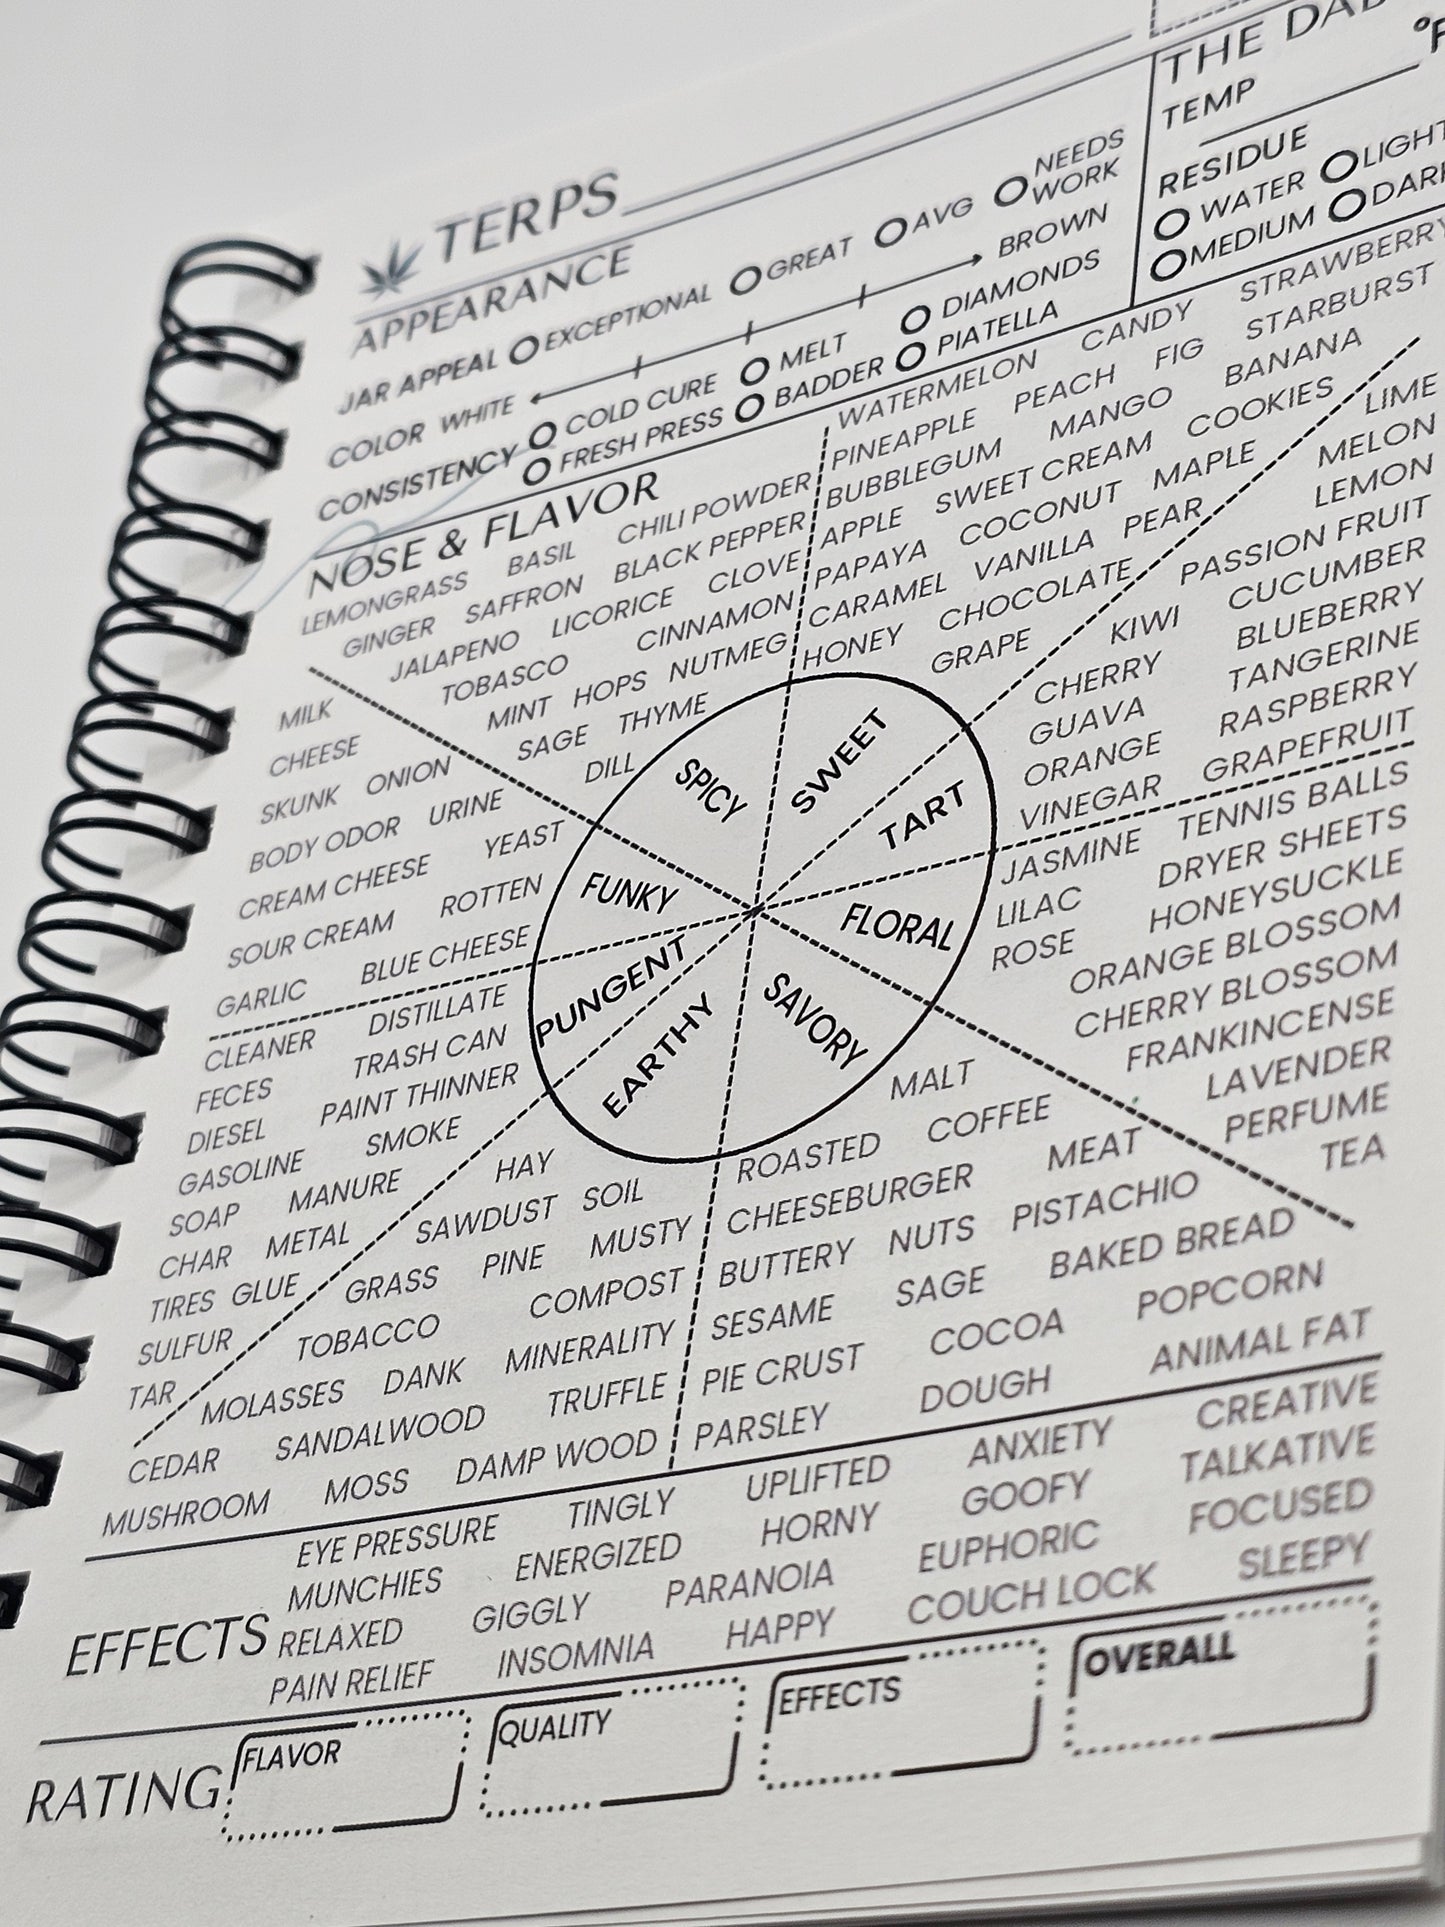 TERPS
THE DAB
TEMP °F
RESIDUE
WATER LIGHT
MEDIUM DARK
APPEARANCE
JAR APPEAL EXCEPTIONAL GREAT AVG NEEDS WORK
COLOR WHITE BROWN
CONSISTENCY COLD CURE MELT DIAMONDS
FRESH PRESS BADDER PIATELLA
NOSE & FLAVOR
LEMONGRASS BASIL CHILI POWDER
GINGER SAFFRON BLACK PEPPER
JALAPENO LICORICE CLOVE
TOBASCO CINNAMON
MINT HOPS NUTMEG
SAGE THYME
DILL
WATERMELON CANDY STRAWBERRY
PINEAPPLE PEACH FIG STARBURST
BUBBLEGUM MANGO BANANA
APPLE SWEET CREAM COOKIES
PAPAYA COCONUT MAPLE
CARAMEL VANILLA PEAR
HONEY CHOCOLATE
GRAPE
LIME
MELON
LEMON
PASSION FRUIT
KIWI CUCUMBER
CHERRY BLUEBERRY
GUAVA TANGERINE
ORANGE RASPBERRY
VINEGAR GRAPEFRUIT
MILK
CHEESE
SKUNK ONION
BODY ODOR URINE
CREAM CHEESE YEAST
SOUR CREAM ROTTEN
GARLIC BLUE CHEESE
SPICY
SWEET
TART
FUNKY
FLORAL
PUNGENT
EARTHY
SAVORY
JASMINE TENNIS BALLS
LILAC DRYER SHEETS
ROSE HONEYSUCKLE
ORANGE BLOSSOM
CHERRY BLOSSOM
FRANKINCENSE
LAVENDER
PERFUME
TEA
CLEANER DISTILLATE
FECES TRASH CAN
DIESEL PAINT THINNER
GASOLINE SMOKE
SOAP MANURE
CHAR METAL
TIRES GLUE
SULFUR
TAR
HAY
SAWDUST SOIL
GRASS PINE MUSTY
TOBACCO COMPOST
MOLASSES DANK MINERALITY
CEDAR SANDALWOOD TRUFFLE
MUSHROOM MOSS DAMP WOOD
MALT
ROASTED COFFEE
CHEESEBURGER MEAT
BUTTERY NUTS PISTACHIO
SESAME SAGE BAKED BREAD
PIE CRUST COCOA POPCORN
PARSLEY DOUGH ANIMAL FAT
EFFECTS
EYE PRESSURE TINGLY UPLIFTED ANXIETY CREATIVE
MUNCHIES ENERGIZED HORNY GOOFY TALKATIVE
RELAXED GIGGLY PARANOIA EUPHORIC FOCUSED
PAIN RELIEF INSOMNIA HAPPY COUCH LOCK SLEEPY
RATING
FLAVOR QUALITY EFFECTS OVERALL